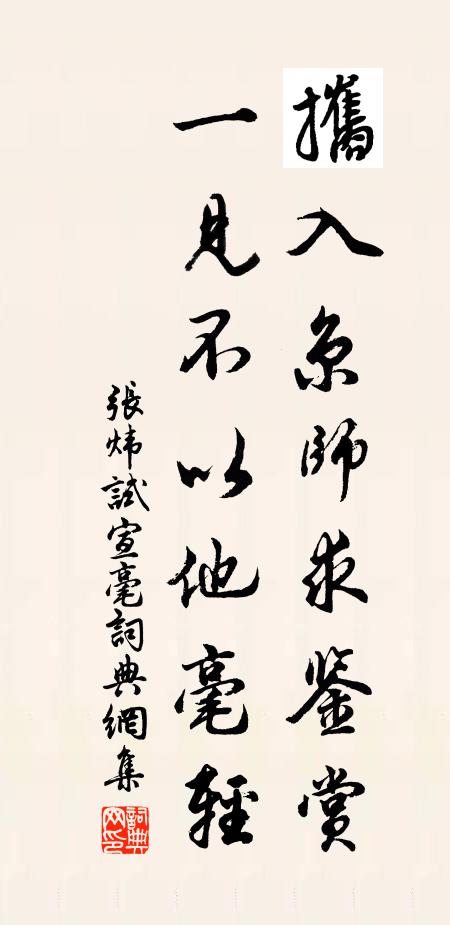 攜入京師求鉴賞
一見不以他毫輕
張煒試宣毫詞典網集
詞典網印